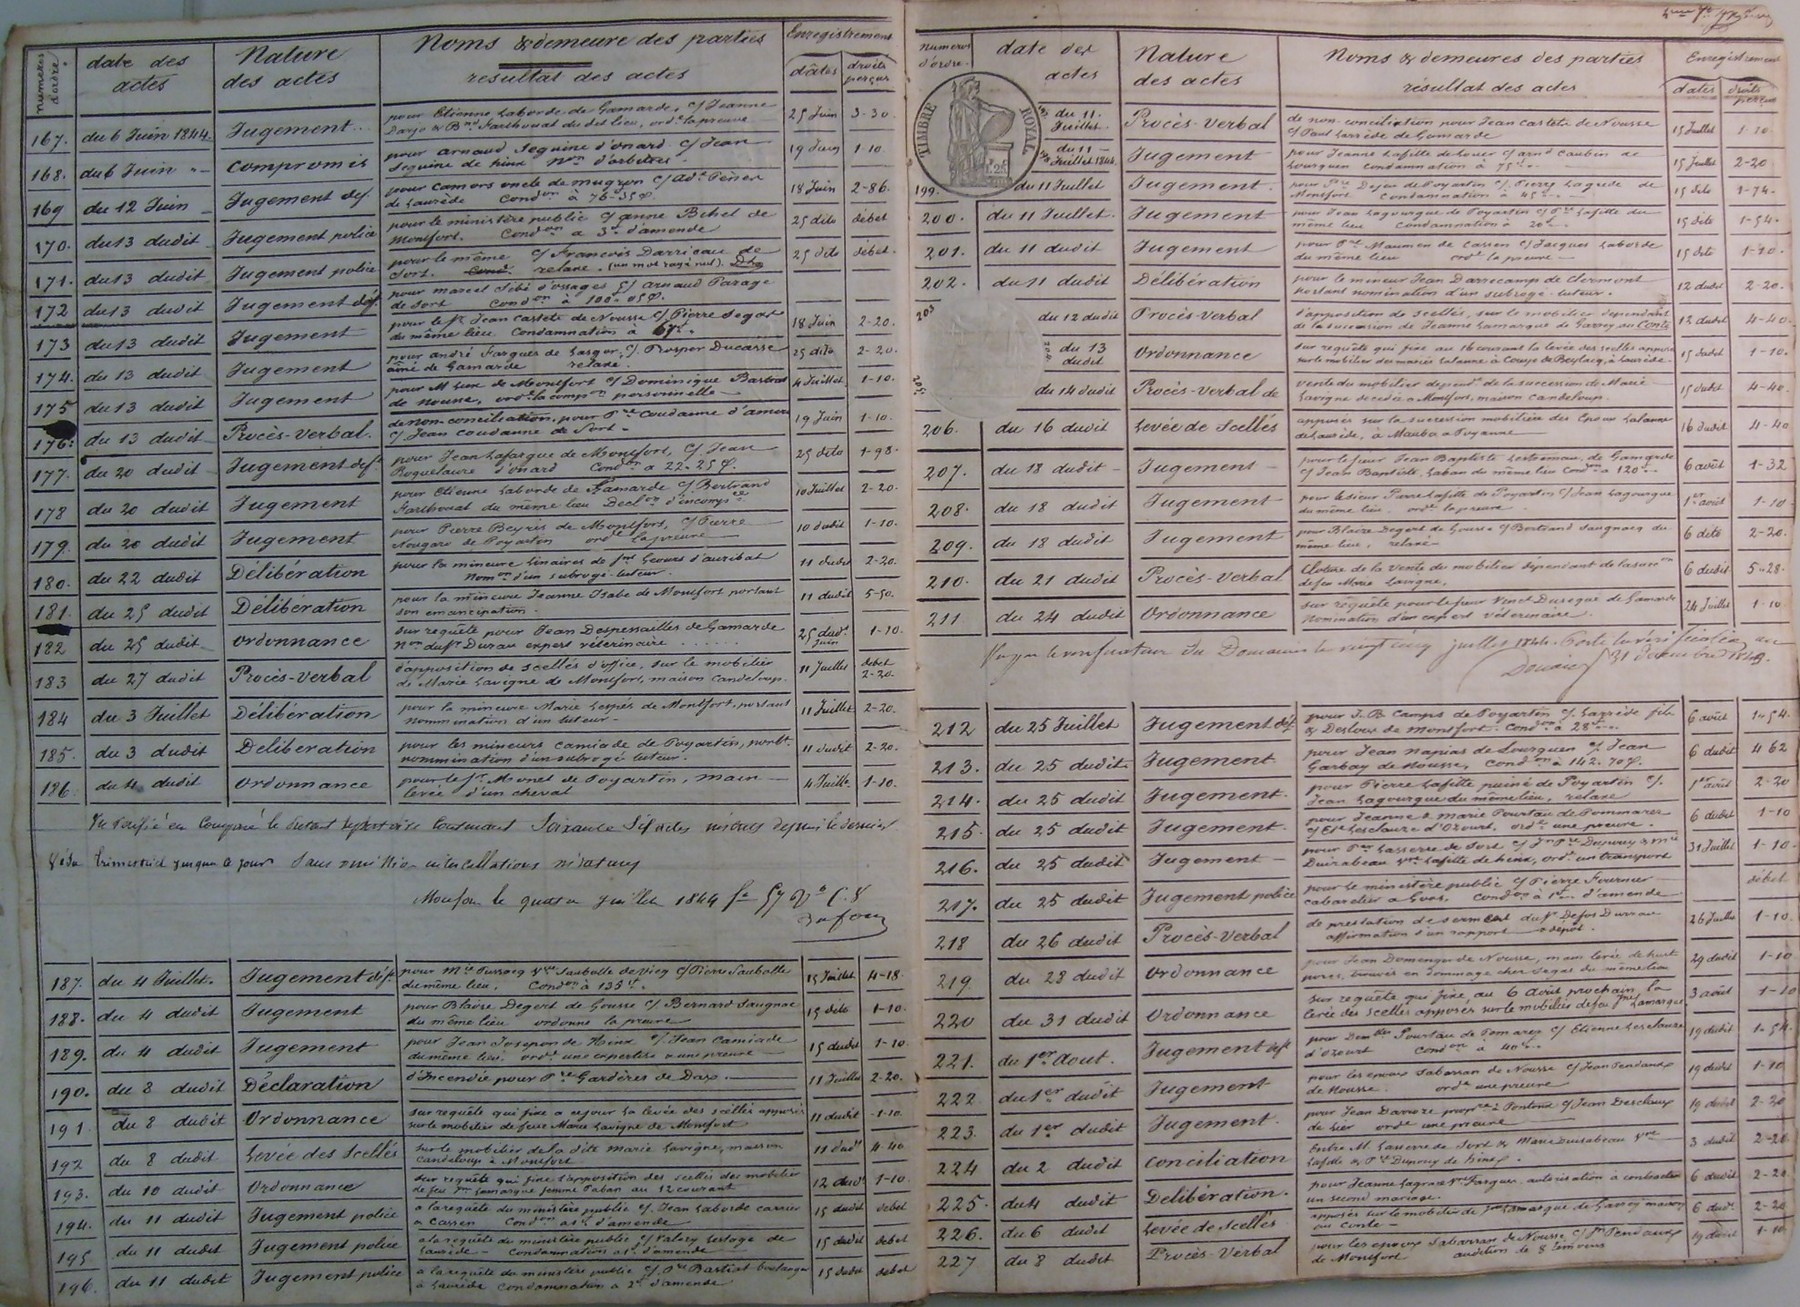 numéros d'ordre. date des actes Nature des actes Noms & demeure des parties résultat des actes Enregistrement dates droits perçus
167. du 6 Juin 1844. Jugement pour Etienne Laborde de Gamarde, c/ Jeanne
Darjo & du dit lieu, ord.e la preuve 25 Juin 3-30.
168. du 6 Juin Compromis pour Arnaud Seguine d'onard c/ Jean
Seguine de hinx d'arbitres 19 Juin 1-10.
169 du 12 Juin Jugement def pour Camors oncle de mugron c/
de Laurède Cond.on à 76-35 18 Juin 2-86.
170. du 13 dudit Jugement police pour le ministère public c/ Bthel de
Montfort. Cond.on à d'amende 25 dito débet
171. du 13 dudit Jugement police pour le même c/ François Darricau de
Sort. relaxe. (un mot rayé nul). 25 dito débet.
172 du 13 dudit Jugement déf. pour marcel Sibé d'ossages c/ arnaud Parage
de Sort Cond.on à 100-05
173 du 13 dudit Jugement pour le Sr. Jean Casteté de Nousse c/ Pierre Segas
du même lieu Condamnation à 18 Juin 2-20.
174. du 13 dudit Jugement pour andré Fargues de c/. Prosper Ducasse
ainé de Gamarde relaxe. 25 dito 2-20.
175 du 13 dudit Jugement pour M de Montfort c/ Dominique
de nousse, ord.e la comp.on personnelle 4 Juillet 1-10.
176. du 13 dudit Procès-Verbal. de non-conciliation, pour Coudanne d'amou
c/ Jean coudanne de Sort 19 Juin 1-10.
177. du 20 dudit Jugement def. pour Jean Lafargue de Montfort, c/. Jean
Roquelaure d'onard Cond.on à 22-25 25 dito 1-98.
178 du 20 dudit Jugement pour Etienne Laborde de Gamarde c/ Bertrand
Farthouat du même lieu 10 Juillet 2-20.
179. du 20 dudit Jugement pour Pierre Beyris de Montfort, c/ Pierre
Nougaro de Poyartin ord.e la preuve 10 dudit 1-10.
180. du 22 dudit Délibération pour la mineure Linaires de St Geours d'auribat
Nom.on d'un subrogé-tuteur. 11 dudit 2-20.
181. du 25 dudit Délibération pour la mineure Jeanne Isabe de Montfort portant
son emancipation. 11 dudit 5-50.
182 du 25 dudit ordonnance sur requête pour Jean Despessailles de Gamarde
du Sr. Durau expert vétérinaire . . . . . 25 dud. Juin 1-10.
183 du 27 dudit Procès-Verbal d'apposition de scellés d'office, sur le mobilier
de Marie Lavigne de Montfort, maison Candeloup. 11 Juillet débet 2-20.
184 du 3 Juillet Délibération pour la mineure Marie Lespés de Montfort, portant
nomination d'un tuteur 11 Juillet 2-20.
185. du 3 dudit Deliberation pour les mineurs Camiade de Poyartin, port.t
nomination d'un subrogé tuteur. 11 dudit 2-20.
186 du 4 dudit Ordonnance pour le Sr. Monet de Poyartin, main
levée d'un cheval 4 Juillt. 1-10.
Vu vérifié et Comparé le présent répertoire Contenant Soixante actes inscrits depuis le dernier
Visa trimestriel jusqu'à ce jour Sans omission intercallations ni ratures
Monfort le quatre Juillet 1844
Dufour
187. du 4 Juillet. Jugement déf. pour Vve Saubotte de Vicq c/ Pierre Saubotte
du même lieu. Cond.on à 135 15 Juillet 4-18
188. du 4 dudit Jugement pour Blaise Degert de Gousse c/ Bernard Saugnac
du même lieu ordonne la preuve 15 dito 1-10.
189. du 4 dudit Jugement pour Jean de Hinx c/ Jean Camiade
du même lieu. ord.e une expertise & une preuve 15 dudit 1-10
190. du 8 dudit Déclaration d'Incendie pour Pre Gardères de Dax. 11 Juillet 2-20.
191. du 8 dudit Ordonnance sur requête qui fixe a ce jour la levée des scellés apposés
sur le mobilier de feue Marie Lavigne de Montfort 11 dudit 1-10.
192 du 8 dudit Levée des Scellés sur le mobilier de la dite Marie Lavigne, maison
Candeloup à Montfort 11 dudt 4-40
193. du 10 dudit Ordonnance sur requête qui fixe l'apposition des scellés des mobilier
de feu Lamarque femme Taban au 12 courant 12 dud. 1-10.
194. du 11 dudit Jugement police à la requête du ministère public c/. Jean Laborde carrier
à Cassen Cond.on d'amende 15 dudit débet
195 du 11 dudit Jugement police à la requête du ministère public c/ Valery Lestage de
Laurède Condamnation d'amende 15 dudit debet
196. du 11 dudit Jugement police à la requête du ministère public c/ Pre Bastiat boulanger
à Laurède Condamnation à d'amende 15 dudit debet
Numéros d'ordre. date des actes Nature des actes Noms & demeures des parties résultat des actes Enregistrement dates droits perçus
TIMBRE ROYAL
1f.25
197 du 11 Juillet Procès-Verbal de non-conciliation pour Jean Casteté de Nousse
c/ Paul Larrède de Gamarde 15 Juillet 1-10.
198 du 11 Juillet 1844. Jugement pour Jeanne Lafitte de Louer c/ arnd Caubin de
Lourquen Condamnation à 75 15 Juillet 2-20
199. du 11 Juillet Jugement. pour Pre Dejou de Poyartin c/. Pierre Lagrede de
Montfort Condamnation à 45 15 dito 1-74.
200. du 11 Juillet. Jugement pour Jean Lagourgue de Poyartin c/ Lafitte du
même lieu Condamnation à 20 15 dito 1-54.
201. du 11 dudit Jugement pour Maumen de Cassen c/ Jacques Laborde
du même lieu ord.e la preuve 15 dito 1-10.
202. du 11 dudit Délibération pour le mineur Jean Darrecamps de Clermont
portant nomination d'un subrogé-tuteur. 12 dudit 2-20.
203 du 12 dudit Procès-Verbal d'apposition de scellés, sur le mobilier dépendant
de la succession de Jeanne Lamarque de Garrey, au Conte 12 dudit 4-40.
204 du 13 dudit Ordonnance sur requête qui fixe au 16 courant la levée des scellés apposés
sur le mobilier des mariés Lalanne à Couye de Beylacq, à Laurède. 15 dudit 1-10.
205. du 14 dudit Procès-Verbal de vente du mobilier depend.t de la succession de Marie
Lavigne décédée à Montfort, maison Candeloup. 15 dudit 4-40.
206. du 16 dudit Levée de Scellés apposés sur la succession mobilière des Epoux Lalanne
de Laurède, à Mauba a Poyanne 16 dudit 4-40
207. du 18 dudit Jugement pour le sieur Jean Baptiste Lestremau, de Gamarde
c/ Jean Baptiste Laban du même lieu Cond.on à 120 6 août 1-32
208. du 18 dudit Jugement pour le sieur Pierre Lafitte de Poyartin c/ Jean Lagourgue
du même lieu. ord.e la preuve 1er août 1-10
209. du 18 dudit Jugement pour Blaise Degert de Gousse c/ Bertrand Saugnacq du
même lieu, relaxé 6 dito 2-20.
210. du 21 dudit Procès-Verbal Cloture de la Vente du mobilier dépendant de la
de feu Marie Lavigne. 6 dudit 5-28.
211 du 24 dudit Ordonnance sur requête pour le sieur Vinct Dusegue de Gamarde
nomination d'un expert vétérinaire. 24 Juillet 1-10
Vu par le vérificateur des Domaines le vingt cinq juillet 1844.
31 décembre 1843.
212 du 25 Juillet Jugement déf. pour J.B Camps de Poyartin c/ Larrède fils
& Desloux de Montfort. Cond.on à 28 6 août 1-54.
213. du 25 dudit Jugement pour Jean Napias de Lourquen c/ Jean
Garbay de Nousse, Cond.on à 142.70 6 dudit 4 62
214. du 25 dudit Jugement. pour Pierre Lafitte puiné de Poyartin c/.
Jean Lagourgue du même lieu, relaxe 1er août 2-20
215. du 25 dudit Jugement. pour Jeanne & marie Pourtau de Pommarez
c/ Lesclauze d'Ozourt. ord.e une preuve. 6 dudit 1-10
216. du 25 dudit Jugement pour Lasserre de Sort c/ Dupouy & Mie
Duirabeau Vve Lafitte de hinx, ord.e un transport 31 Juillet 1-10
217. du 25 dudit Jugement police pour le ministère public c/ Pierre Fournier
cabaretier à Gibret. Cond.on à d'amende débet
218 du 26 dudit Procès-Verbal de prestation de serment du Sr Defos Durau
affirmation d'un rapport & dépôt. 26 Juillet 1-10.
219 du 28 dudit Ordonnance pour Jean Domenger de Nousse, main levée de huit
porcs, trouvés en dommage chez Segas du même lieu 29 dudit 1-10
220 du 31 dudit Ordonnance sur requête qui fixe, au 6 Août prochain la
levée des scellés apposés sur le mobilier de feu Jne Lamarque 3 août 1-10
221. du 1er Aout. Jugement def. pour Pourtau de Pomarez c/ Etienne Lesclauze
d'Ozourt Cond.on à 40 19 dudit 1-54.
222 du 1er dudit Jugement pour les epoux Tabarran de Nousse c/ Jean Tendaux
de Nousse. ord.e une preuve 19 dudit 1-10.
223. du 1er dudit Jugement. pour Jean Darroze Pontonx c/ Jean Desclaux
de Lier ord.e une preuve 19 dudit 2-20
224 du 2 dudit Conciliation Entre M. Lasserre de Sort & Marie Duirabeau Vve
Lafitte & Dupouy de hinx. 3 dudit 2-20.
225. du 4 dudit Delibération. pour Jeanne Lagraze Vve Fargues autorisation à contracter
un second mariage. 6 dudit 2-20
226. du 6 dudit Levée de Scellés apposés sur le mobilier de Jne Lamarque de Garrey maison
au Conte 6 dud. 2-20
227 du 8 dudit Procès-Verbal pour les epoux Tabarran de Nousse c/ Tendaux
de Montfort audition de 8 témoins 19 dudit 1-10